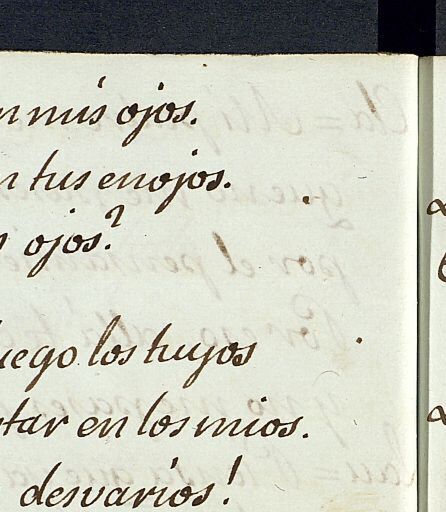 n mis ojos.
n tus enojos.
s ojos?
uego los tuyos
tar en los mios.
desvaríos!